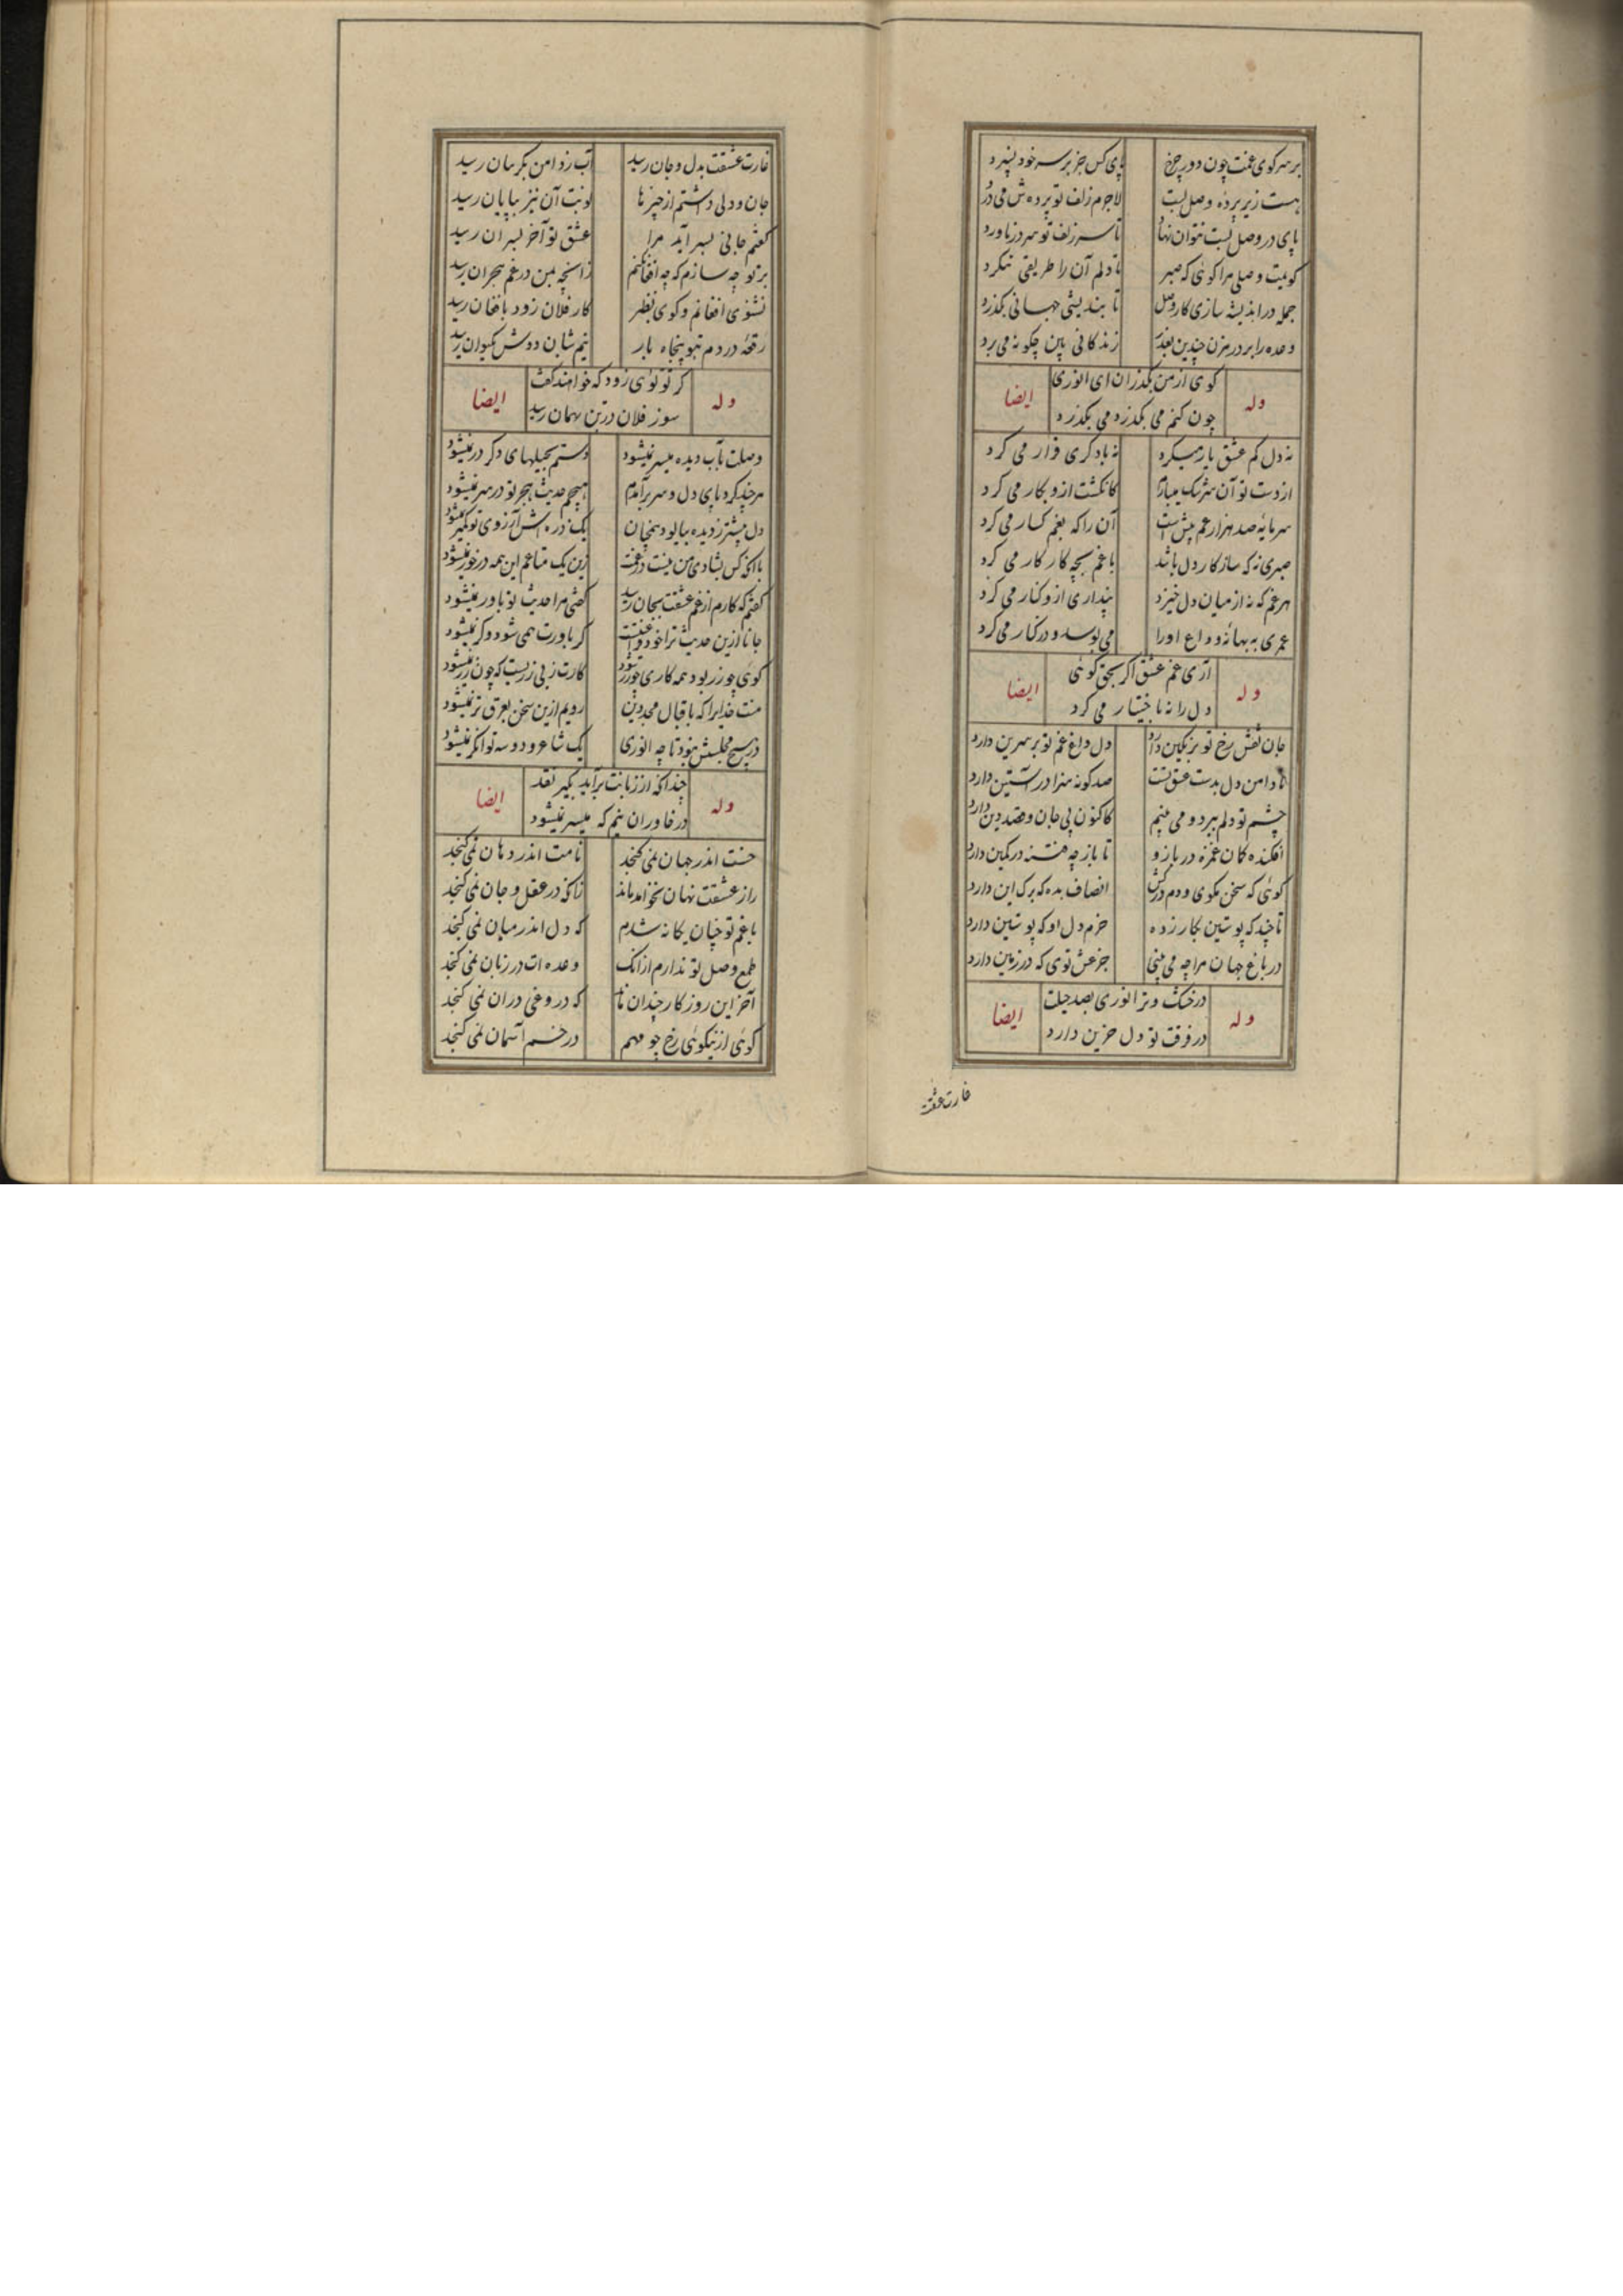 بر سر کوی غمت چون دور چرخ
پای کس جز بر سر خود نسپرد
هست زیر پرده وصل لبت
لاجرم زلف تو پرده‌ش می درد
پای در وصل لبت نتوان نهاد
تا سر زلف تو سر در ناورد
کویت وصلی مرا گوئی که صبر
تا دلم آن را طریقی بنگرد
جمله در اندیشه سازی کار وصل
تا بندیشی جهانی بگذرد
وعده را بر در مزن چندین بعذر
زندگانی بین چگونه می برد
وله
گوی از من بگذران ای انوری
ایضا
چون کنم می بگذرد می بگذرد
نه دل کم عشق یار میگیرد
نه با دگری قرار می گیرد
از دست تو آن سرشک میبارم
کانگشت ازو نگار می گیرد
سرمایه صد هزار غم بیش است
آن را که بغمگسار می گیرد
صبری نه که سازگار دل باشد
با غم بچه کار کار می گیرد
هر غم که نه از میان دل خیزد
پنداری ازو کنار می گیرد
عمری به بهانه وداع او را
می بوسد و در کنار می گیرد
وله
آری غم عشق اگر بحق گوئی
ایضا
دل را نه باختیار می گیرد
جان نقش رخ تو بر نگین دارد
دل داغ غم تو بر سرین دارد
تا دامن دل بدست عشق تست
صد گونه هنر در آستین دارد
چشم تو دلم ببرد و می بینم
کاکنون پی جان و قصد دین دارد
افکنده کمان غمزه در بازو
تا باز چه فتنه در کمین دارد
گوئی که سخن مگوی و دم درکش
انصاف بده که برگ این دارد
تا چند که پوستین بگازر ده
خرم دل او که پوستین دارد
در باغ جهان مرا چه می بینی
جز عشق توی که در زمین دارد
وله
در خشک و تر انوری بصد حیلت
ایضا
در فرقت تو دل حزین دارد
غارت عشقت
غارت عشقت بدل و جان رسید
آب ز دامن بگریبان رسید
جان و دلی داشتم از چیزها
نوبت آن نیز بپایان رسید
گفتم جانی بسر آید مرا
عشق تو آخر بسر آن رسید
بر تو چه سازم که چه افغان کنم
زانچه بمن در غم هجران رسید
نشنوی افغانم و گوی بطنز
کار فلان زود بافغان رسید
رقعه دردم بتو پنجاه بار
نیم شبان دوش بکیوان رسید
وله
گر تو توئی زود که خواهند گفت
ایضا
سوز فلان در تن بهمان رسید
وصلت بآب دیده میسر نمیشود
دستم بحیلهای دگر در نمیشود
هرچند گرد پای دل و سر برآمدم
هیچم حدیث هجر تو در سر نمیشود
دل بیشتر ز دیده بپالود همچنان
یک ذره‌اش آرزوی تو کمتر نمیشود
با آنکه کس بشادی من نیست در غمت
زین یک متاعم این همه درخور نمیشود
گفتم که کارم از غم عشقت بجان رسید
گفتی مرا حدیث تو باور نمیشود
جانا ازین حدیث ترا خود فراغتست
گر باورت همی شود و گر نمیشود
گوئی چو زر بود همه کاری چو زر شود
کارت ز بی زریست که چون زر نمیشود
منت خدایرا که باقبال مجد دین
رویم ازین سخن بعرق تر نمیشود
در هیچ مجلسش نبود تا چه انوری
یک شاعر و دو سه توانگر نمیشود
وله
چندانکه از زبانت برآید بگیر نقد
ایضا
در خاوران بنیم که میسر نمیشود
حسنت اندر جهان نمی گنجد
نامت اندر دهان نمی گنجد
راز عشقت نهان نخواهد ماند
زانکه در عقل و جان نمی گنجد
با غم تو چنان یگانه شدم
که دل اندر میان نمی گنجد
طمع وصل تو ندارم از آنک
وعده‌ات در زبان نمی گنجد
آخر این روزگار چندان ماند
که دروغی دران نمی گنجد
گوئی از نیکوئی رخ چو مهم
در خم آسمان نمی گنجد